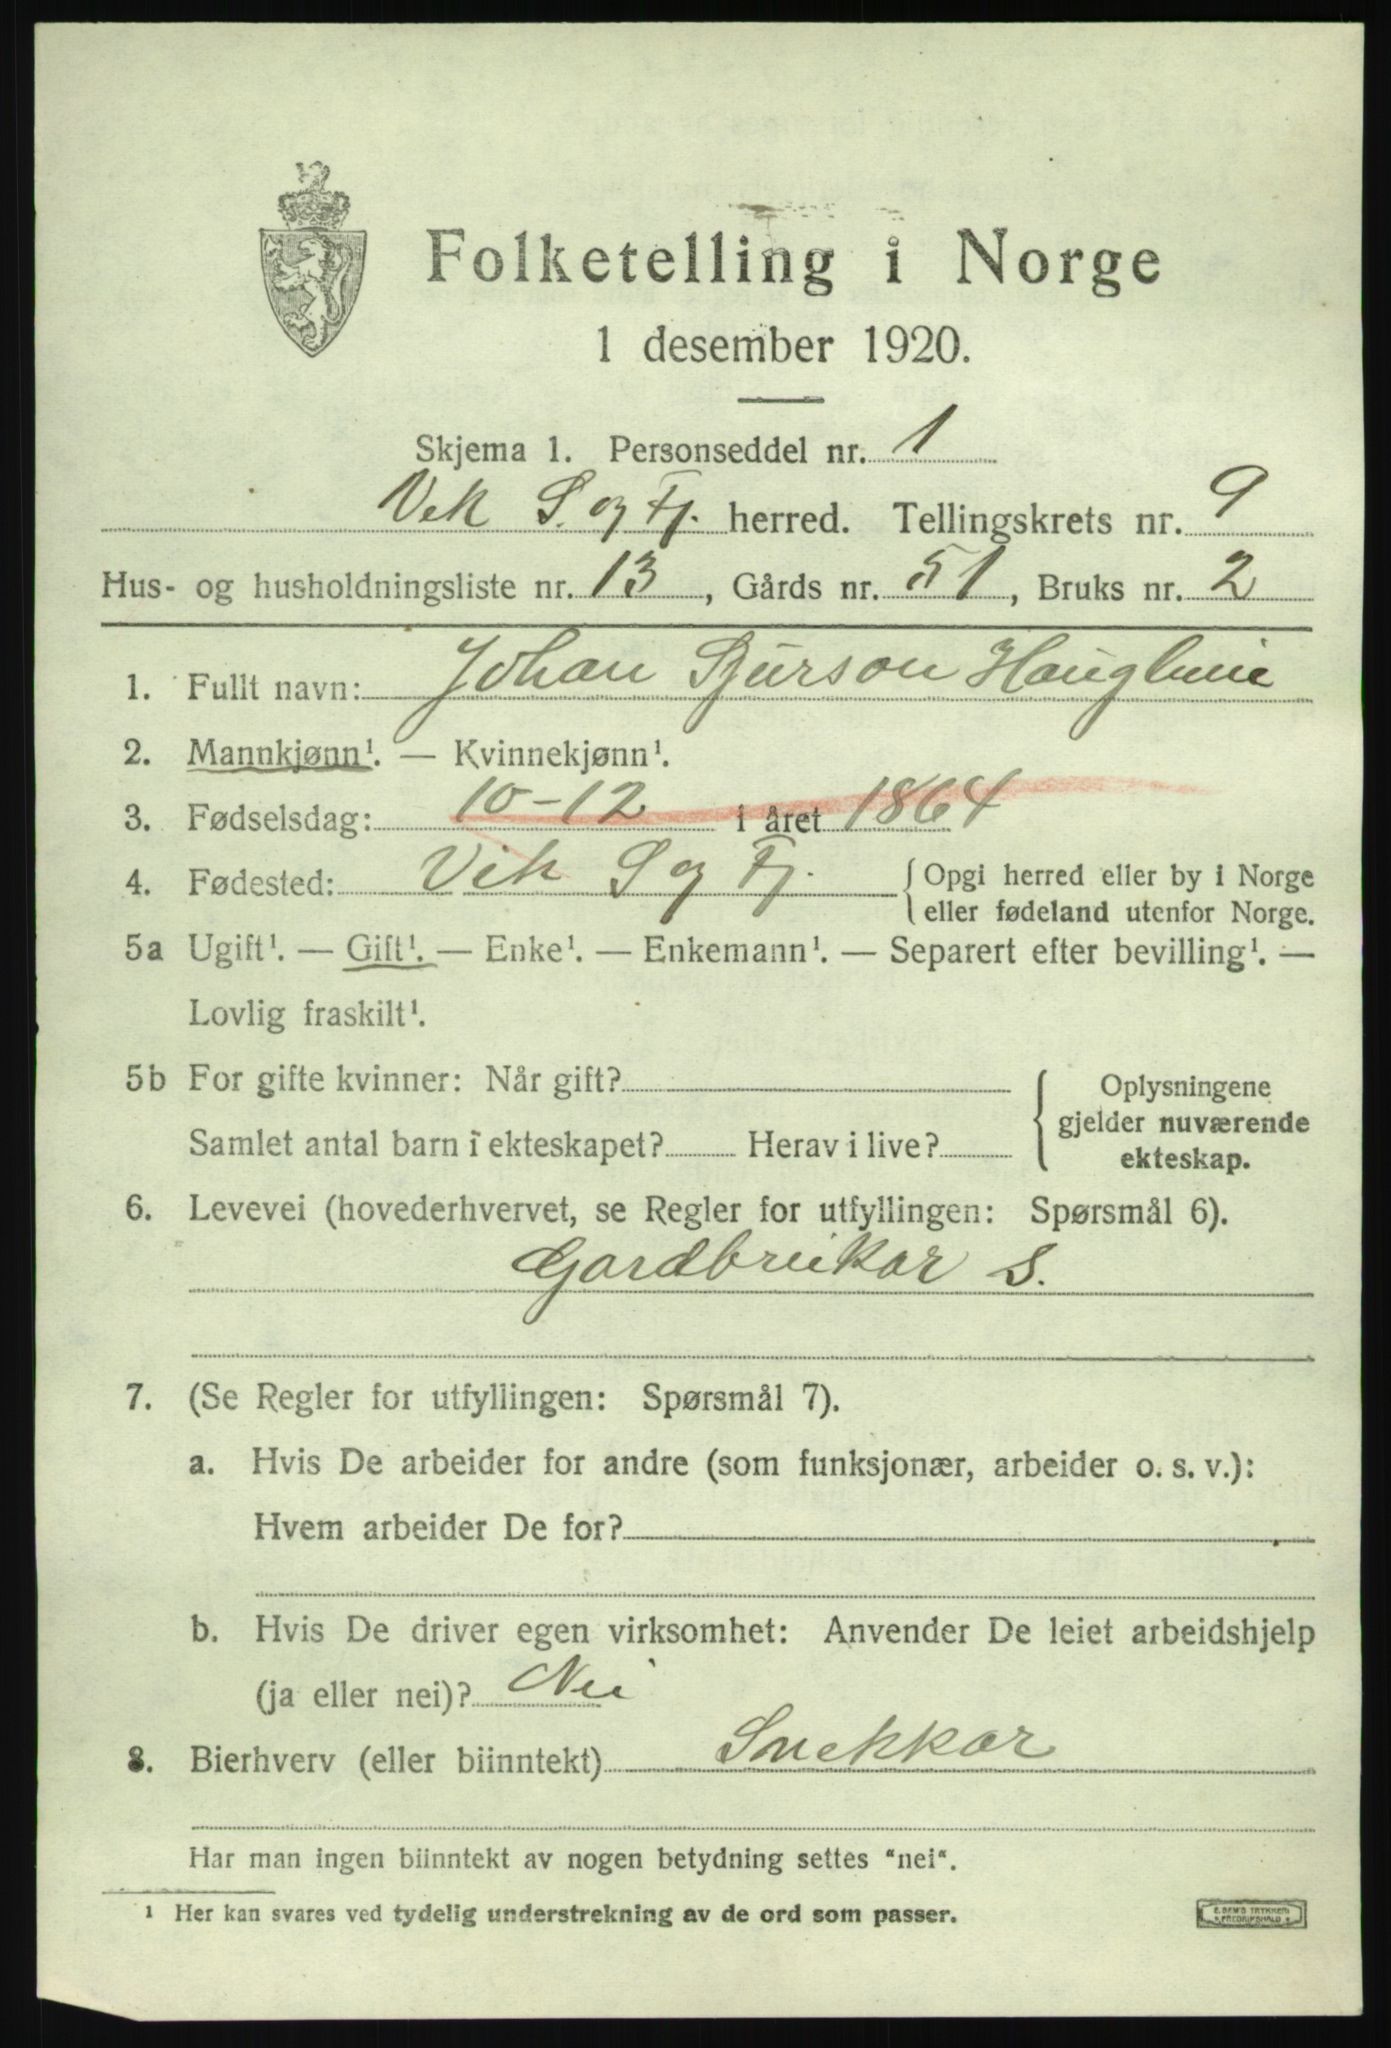 Folketelling i Norge
1 desember 1920.
Skjema 1. Personseddel nr. 1
Vik S. og Fj. herred. Tellingskrets nr. 9
Hus- og husholdningsliste nr. 13, Gårds nr. 51, Bruks nr. 2
1. Fullt navn: Johan Sjurson
2. Mannkjønn¹. — Kvinnekjønn¹.
3. Fødselsdag: 10-12 i året 1864
4. Fødested: Vik S og Fj. { Opgi herred eller by i Norge
eller fødeland utenfor Norge.
5a Ugift¹. — Gift¹. — Enke¹. — Enkemann¹. — Separert efter bevilling¹. —
Lovlig fraskilt¹.
5b For gifte kvinner: Når gift?
Samlet antal barn i ekteskapet? Herav i live?
{ Oplysningene
gjelder nuværende
ekteskap.
6. Levevei (hovederhvervet, se Regler for utfyllingen: Spørsmål 6).
Gardbrukar S.
7. (Se Regler for utfyllingen: Spørsmål 7).
a. Hvis De arbeider for andre (som funksjonær, arbeider o. s. v.):
Hvem arbeider De for?
b. Hvis De driver egen virksomhet: Anvender De leiet arbeidshjelp
(ja eller nei)? Nei
8. Bierhverv (eller biinntekt) Snekkar
Har man ingen biinntekt av nogen betydning settes "nei".
¹ Her kan svares ved tydelig understrekning av de ord som passer.
E. SEM'S TRYKKERI
FREDRIKSHALD